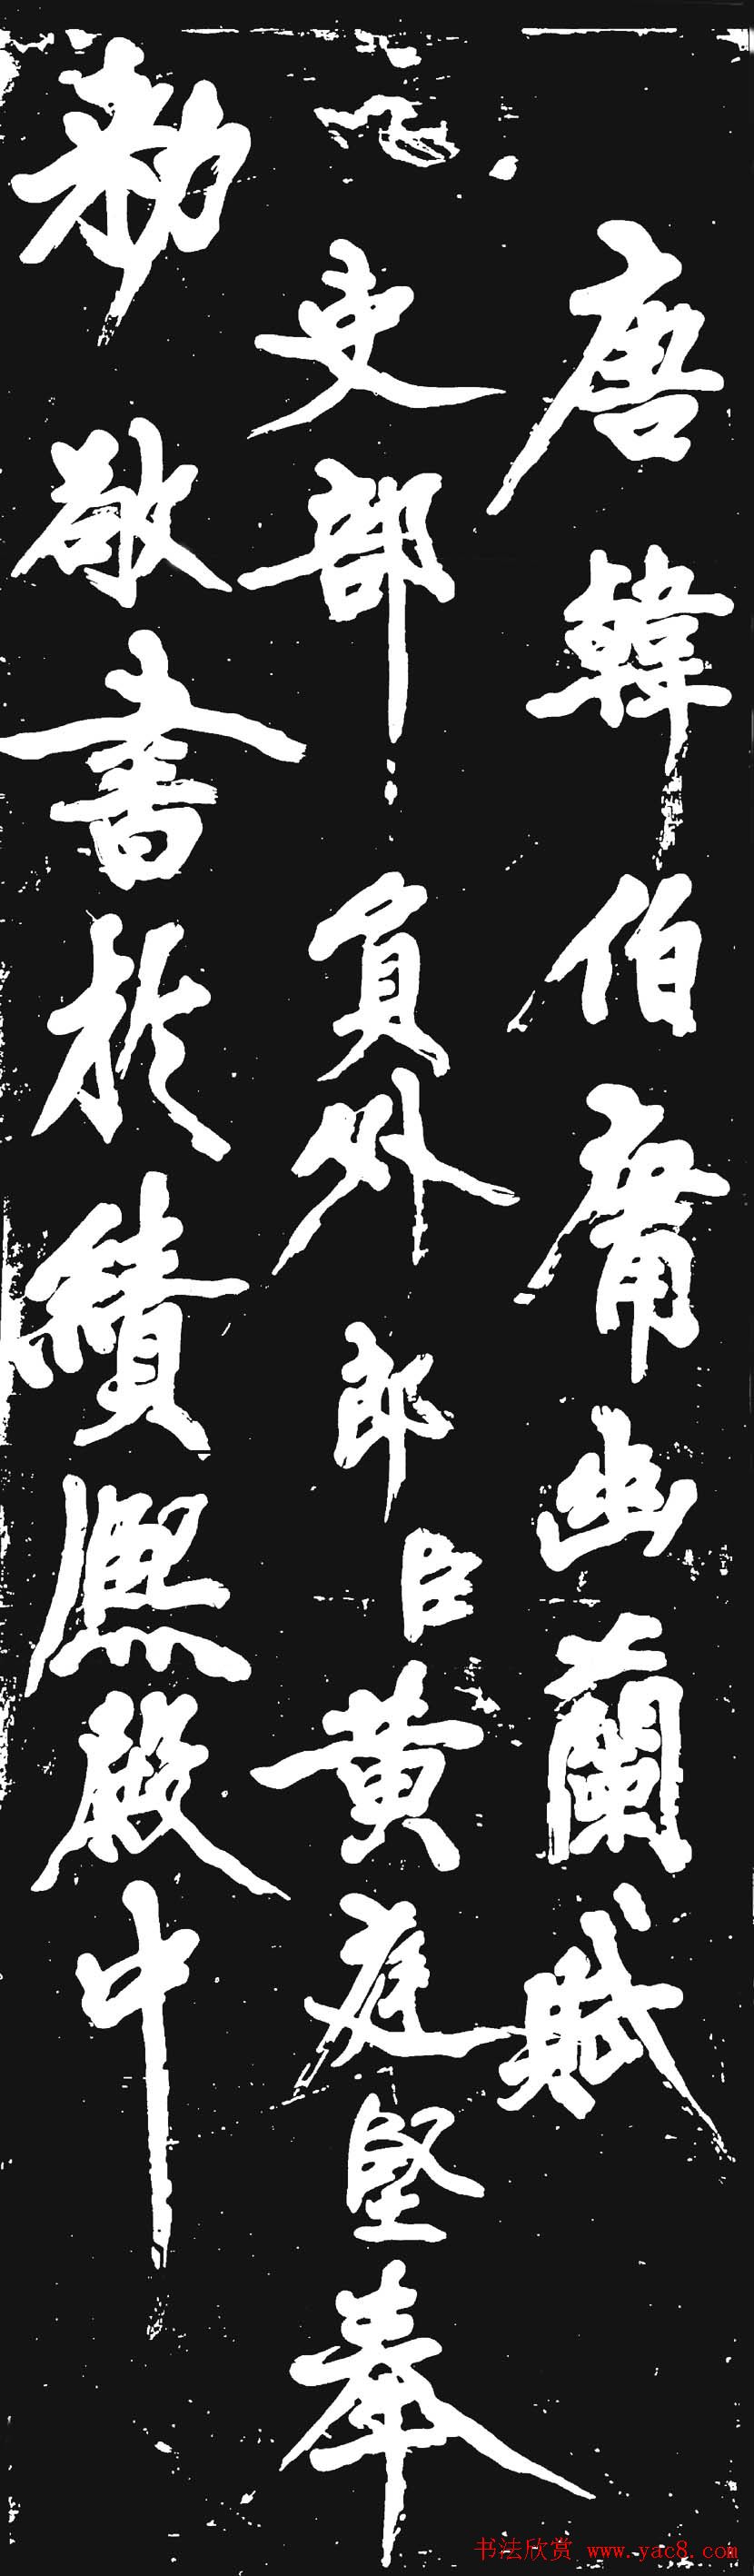 唐韓伯庸幽蘭賦
吏部員外郎臣黃庭堅奉
勑敬書於績熙殿中
书法欣赏 www.yac8.com